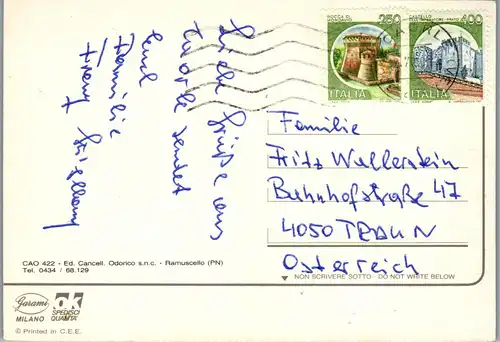 Liebe Grüße aus
Caorle sendet
Familie
Franz
ROCCA DI
URBISAGLIA
250
ITALIA
CASTELLO
400
ITALIA
Familie
Fritz Wallerstein
Bahnhofstraße 47
4050 TRAUN
Österreich
CAO 422 - Ed. Cancell. Odorico s.n.c. - Ramuscello (PN)
Tel. 0434 / 68.129
NON SCRIVERE SOTTO - DO NOT WRITE BELOW
Garami
MILANO
ok
SPEDISCI
QUALITÀ
© Printed in C.E.E.